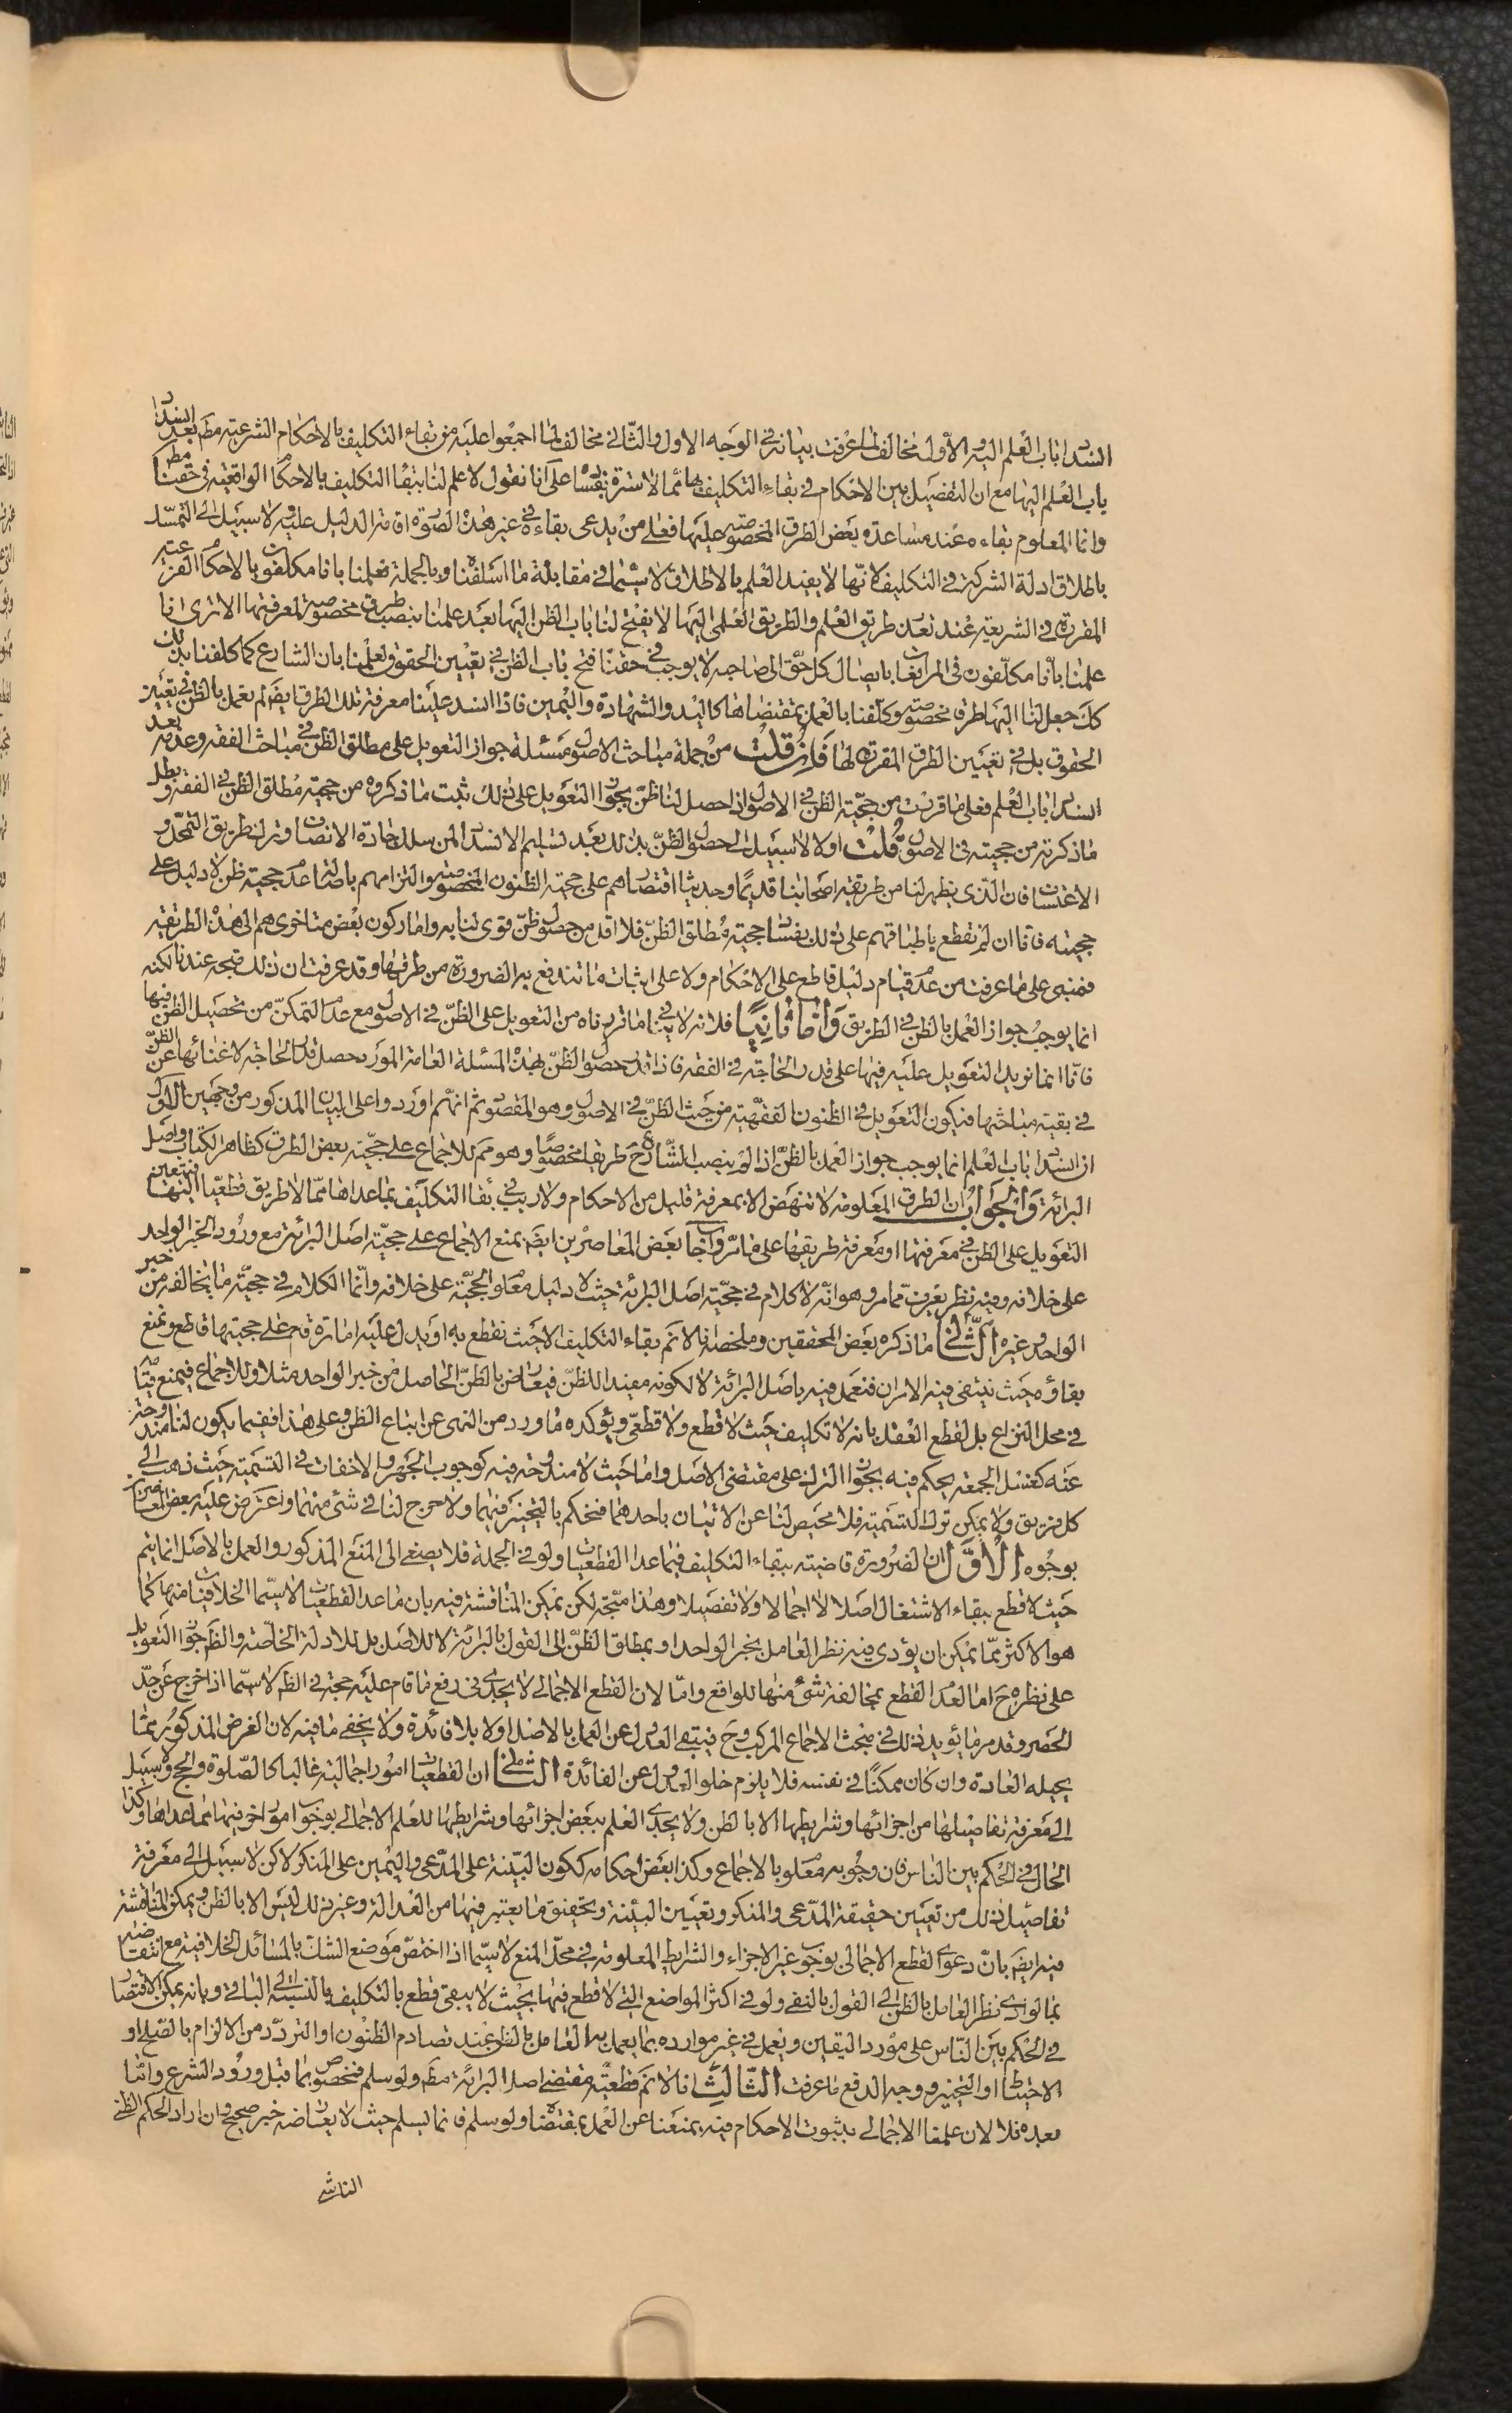 انسداد باب العلم اليه والاول مخالف لما عرفت بيانه في الوجه الاول والثاني مخالف لما اجمعوا عليه من بقاء التكليف بالاحكام الشرعية مط بعد انسداد
باب العلم اليها مع ان التفصيل بين الاحكام في بقاء التكليف بها مما لا سترة في فساده على انا نقول لا علم لنا ببقاء التكليف بالاحكام الواقعية في حقنا مط
وانما المعلوم بقاءه عند مساعدة بعض الطرق المخصوصة عليها فعلى من يدعى بقاءه في غير هذه الصورة اقامة الدليل عليه ولا سبيل الى التمسك
باطلاق ادلة الشركة في التكليف لانها لا يفيد العلم بالاطلاق لا سيما في مقابلة ما اسلفناه وبالجملة فعلمنا بانا مكلفون بالاحكام الفرعية
المقررة في الشريعة عند تعذر طريق العلم والطريق العلمى اليها لا يفتح لنا باب الظن اليها بعد علمنا بنصب طرق مخصوصة لمعرفتها الا ترى انا
علمنا بانا مكلفون في المرافعات بايصال كل حق الى صاحبه لا يوجب في حقنا فتح باب الظن في تعيين الحقوق لعلمنا بان الشارع كما كلفنا بذلك
كك جعل لنا اليها طرقا مخصوصة وكلفنا بالعمل بمقتضاها كاليد والشهادة واليمين فاذا انسد علينا معرفة تلك الطرق ايضا لم نعمل بالظن في تعيين
الحقوق بل في تعيين الطرق المقررة لها فان قلت من جملة مباحث الاصول مسئلة جواز التعويل على مطلق الظن في مباحث الفقه وعدمه بعد
انسداد باب العلم فعلى ما قررت من حجية الظن في الاصول اذا حصل لنا ظن بجواز التعويل على ذلك ثبت ما ذكروه من حجية مطلق الظن في الفقه وبطل
ما ذكرته من حجيته في الاصول قلت اولا لا سبيل الى حصول الظن بذلك بعد تسليم الانسداد لمن سلك جادة الانصاف وترك طريق التمحل و
الاعتساف فان الذى يظهر لنا من طريقة اصحابنا قديما وحديثا اقتصارهم على حجية الظنون المخصوصة والتزامهم باصالة عدم حجية ظن لا دليل على
حجيته فانا ان لم نقطع باطباقهم على ذلك بفساد حجية مطلق الظن فلا اقل من حصول ظن قوى لنا به واما ركون بعض متاخريهم الى هذه الطريقة
فمبنى على ما عرفت من عدم قيام دليل قاطع على الاحكام ولا على اثبات ما تندفع به الضرورة من طرقها وقد عرفت ان ذلك صحيح عندنا لكنه
انما يوجب جواز العمل بالظن في الطريق واما ثانيا فلانه لا ينافي ما قررناه من التعويل على الظن في الاصول مع عدم التمكن من تحصيل الظن فيها
فانا انما نريد التعويل عليه فيها على قدر الحاجة في الفقه فاذا قدر حصول الظن بهذه المسئلة العامة المورد حصل قدر الحاجة لاغنائها عن الظن
في بقية مباحثها فيكون التعويل في الظنون الفقهية من حيث الظن في الاصول وهو المقصود ثم انهم اوردوا على البيان المذكور من وجهين الاول
ان انسداد باب العلم انما يوجب جواز العمل بالظن اذا لم ينصب الشارع ح طريقا مخصوصا وهو مم للاجماع على حجية بعض الطرق كظاهر الكتاب واصل
البرائة والجواب ان الطرق المعلومة لا تنهض الا بمعرفة قليل من الاحكام ولا ريب في بقاء التكليف بما عداها مما لا طريق قطعيا اليها فيتعين
التعويل على الظن في معرفتها او معرفة طريقها على ما مر واجاب بعض المعاصرين ايضا بمنع الاجماع على حجية اصل البرائة مع ورود الخبر الواحد
على خلافه وفيه نظر يعرف مما مر وهو انه لا كلام في حجية اصل البرائة حيث لا دليل معلوم الحجية على خلافه وانما الكلام في حجية ما يخالفه من خبر
الواحد وغيره الثاني ما ذكره بعض المحققين وملخصه انا لا نم بقاء التكليف الا حيث نقطع به او يدل عليه امارة قام على حجيتها قاطع ونمنع
بقاؤه حيث ينتفى فيه الامران فنعمل فيه باصل البرائة لا لكونه مفيدا للظن فيعارض بالظن الحاصل من خبر الواحد مثلا ولا للاجماع فيمنع ثبوته
في محل النزاع بل لقطع العقل بانه لا تكليف حيث لا قطع ولا قطعى ويؤكده ما ورد من النهى عن اتباع الظن وعلى هذا ففيما يكون لنا مندوحة
عنه كغسل الجمعة يحكم فيه بجواز الترك على مقتضى الاصل واما حيث لا مندوحة فيه كوجوب الجهر والاخفات في التسمية حيث ذهب الى
كل فريق ولا يمكن ترك التسمية فلا محيص لنا عن الاتيان باحدهما فنحكم بالتخيير فيهما ولا حرج لنا في شئ منهما واعترض عليه بعض المعاصرين
بوجوه الاول ان الضرورة قاضية ببقاء التكليف فيما عدا القطعيات ولو في الجملة فلا يصغى الى المنع المذكور والعمل بالاصل انما يتم
حيث لا قطع ببقاء الاشتغال اصلا لا اجمالا ولا تفصيلا وهذا متجه لكن يمكن المناقشة فيه بان ما عدا القطعيات لا سيما الخلافيات منها كما
هو الاكثر مما يمكن ان يؤدى فيه نظر العامل بخبر الواحد او بمطلق الظن الى القول بالبرائة لا للاصل بل للادلة الخاصة والظ جواز التعويل
على نظره ح اما لعدم القطع بمخالفة شئ منها للواقع واما لان القطع الاجمالى لا يجدى في رفع ما قام عليه حجة في الظ لا سيما اذا خرج عن حد
الحصر وقد مر ما يؤيد ذلك في مبحث الاجماع المركب وح فيبقى العدول عن العمل بالاصل اولا بلا فائدة ولا يخفى ما فيه لان الفرض المذكور مما
يحيله العادة وان كان ممكنا في نفسه فلا يلزم خلو العدول عن الفائدة الثاني ان القطعيات امور اجمالية غالبا كالصلوة والحج ولا سبيل
الى معرفة تفاصيلها من اجزائها وشرايطها الا بالظن ولا يجدى العلم ببعض اجزائها وشرايطها للعلم الاجمالى بوجوب امور اخر فيها مما عداها وكذا
الحال في الحكم بين الناس فان وجوبه معلوم بالاجماع وكذا بعض احكامه ككون البينة على المدعى واليمين على المنكر لكن لا سبيل الى معرفة
تفاصيل ذلك من تعيين حقيقة المدعى والمنكر وتعيين البينة وتحقيق ما يعتبر فيها من العدالة وغير ذلك ليس الا بالظن ويمكن المناقشة
فيه ايضا بان دعوى القطع الاجمالى بوجوب غير الاجزاء والشرايط المعلومة في محل المنع لا سيما اذا اختص موضع الشك بالمسائل الخلافية مع انتقاضه
بما لو ادى نظر العامل بالظن الى القول بالنفى ولو في اكثر المواضع التي لا قطع فيها بحيث لا يبقى قطع بالتكليف بالنسبة الى الباقي وبانه يمكن الاقتصار
في الحكم بين الناس على مورد اليقين ويعمل في غير موارده بما يعمل به العامل بالظن عند تصادم الظنون او التردد من الالزام بالصلح او
الاحتياط او التخيير ووجه الدفع ما عرفت الثالث انا لا نم قطعية مقتضى اصل البرائة مط ولو سلم فمخصوص بما قبل ورود الشرع واما
بعده فلا لان علمنا الاجمالى بثبوت الاحكام فيه يمنعنا عن العمل بمقتضاه ولو سلم فانما يسلم حيث لا يعارضه خبر صحيح وان اراد الحكم الظنى
الناشى